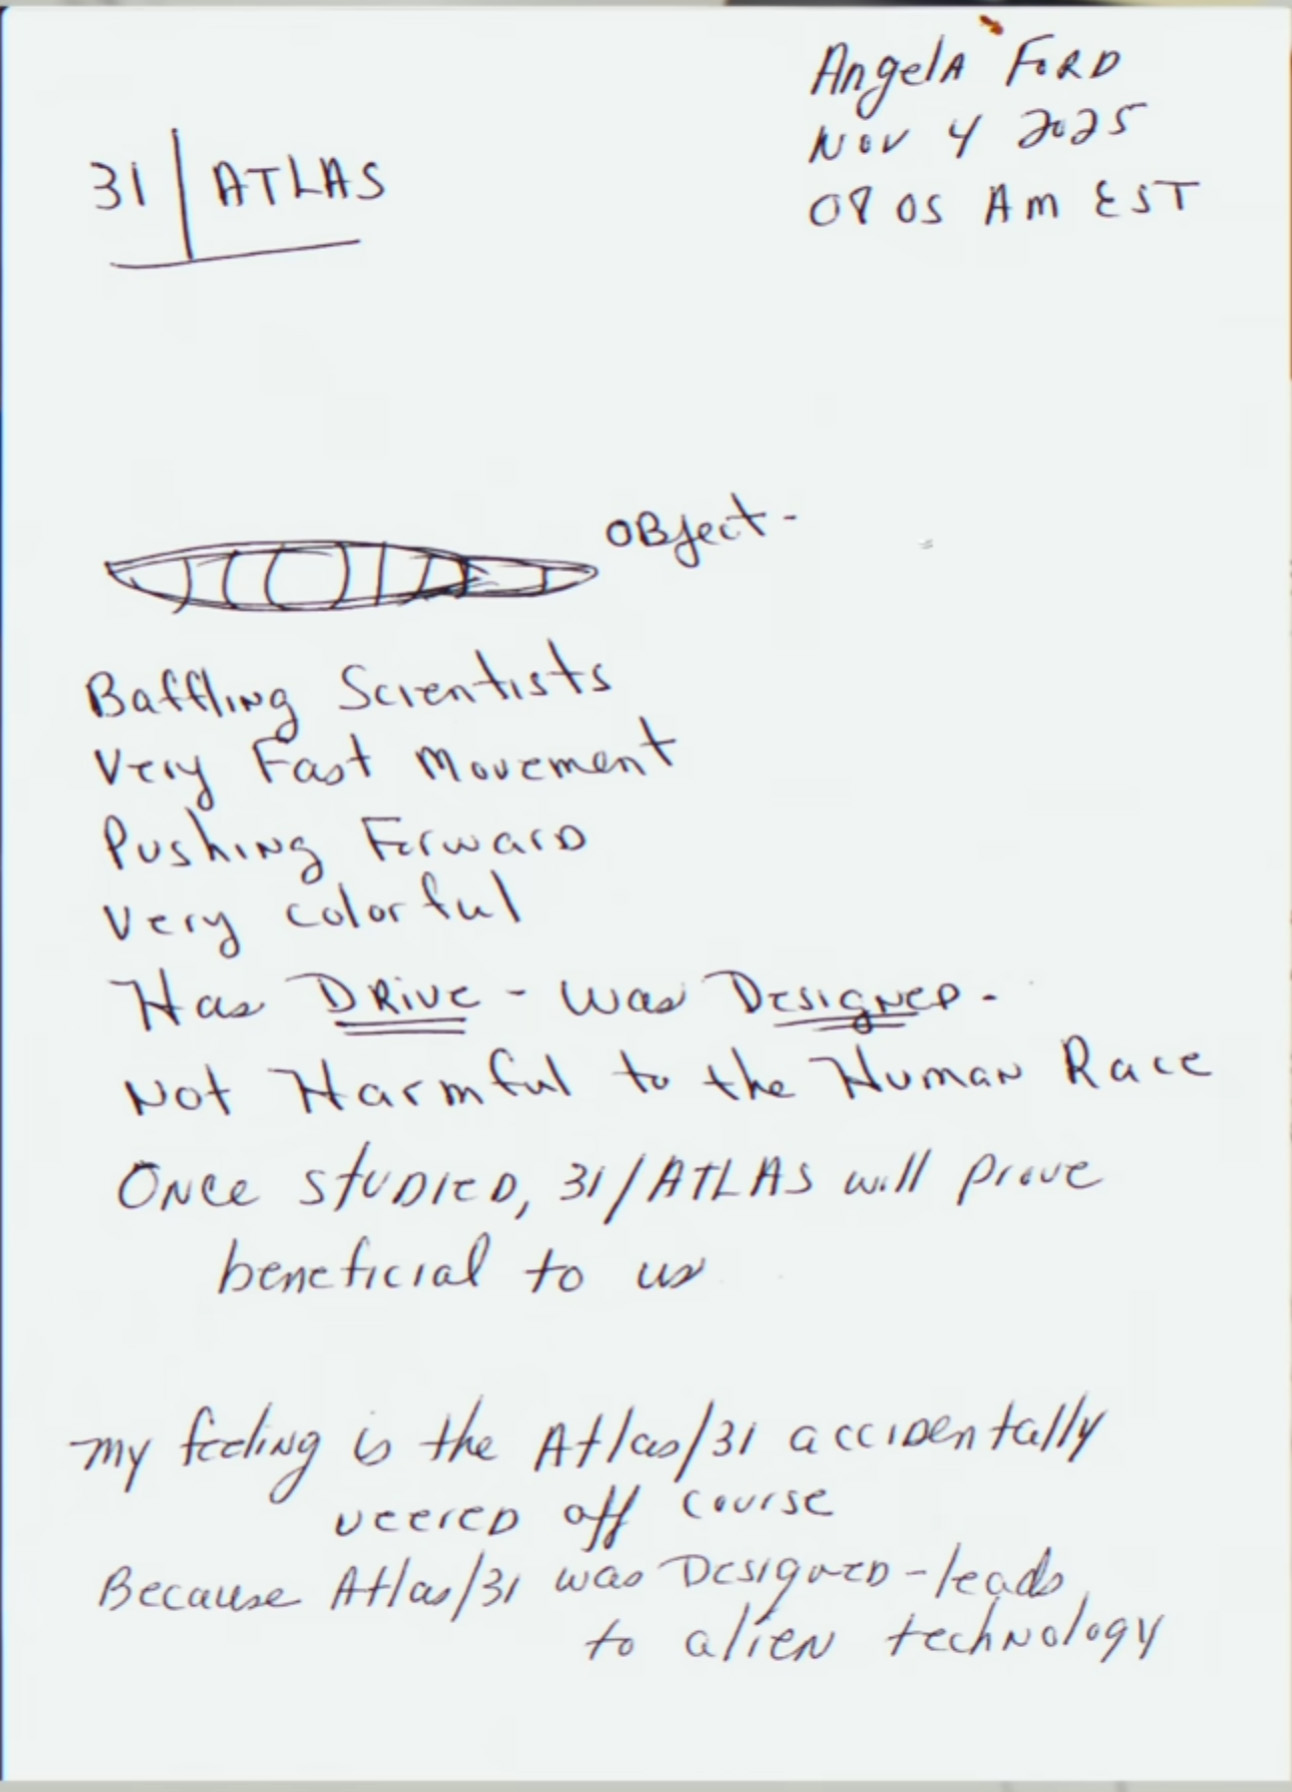 Angela Ford
Nov 4 2025
08 05 Am EST
31 | ATLAS
Object -
Baffling Scientists
Very Fast Movement
Pushing Forward
Very colorful
Has DRIVE - was Designed -
Not Harmful to the Human Race
Once studied, 31/ATLAS will prove
beneficial to us
my feeling is the Atlas/31 accidentally
veered off course
Because Atlas/31 was Designed - leads
to alien technology